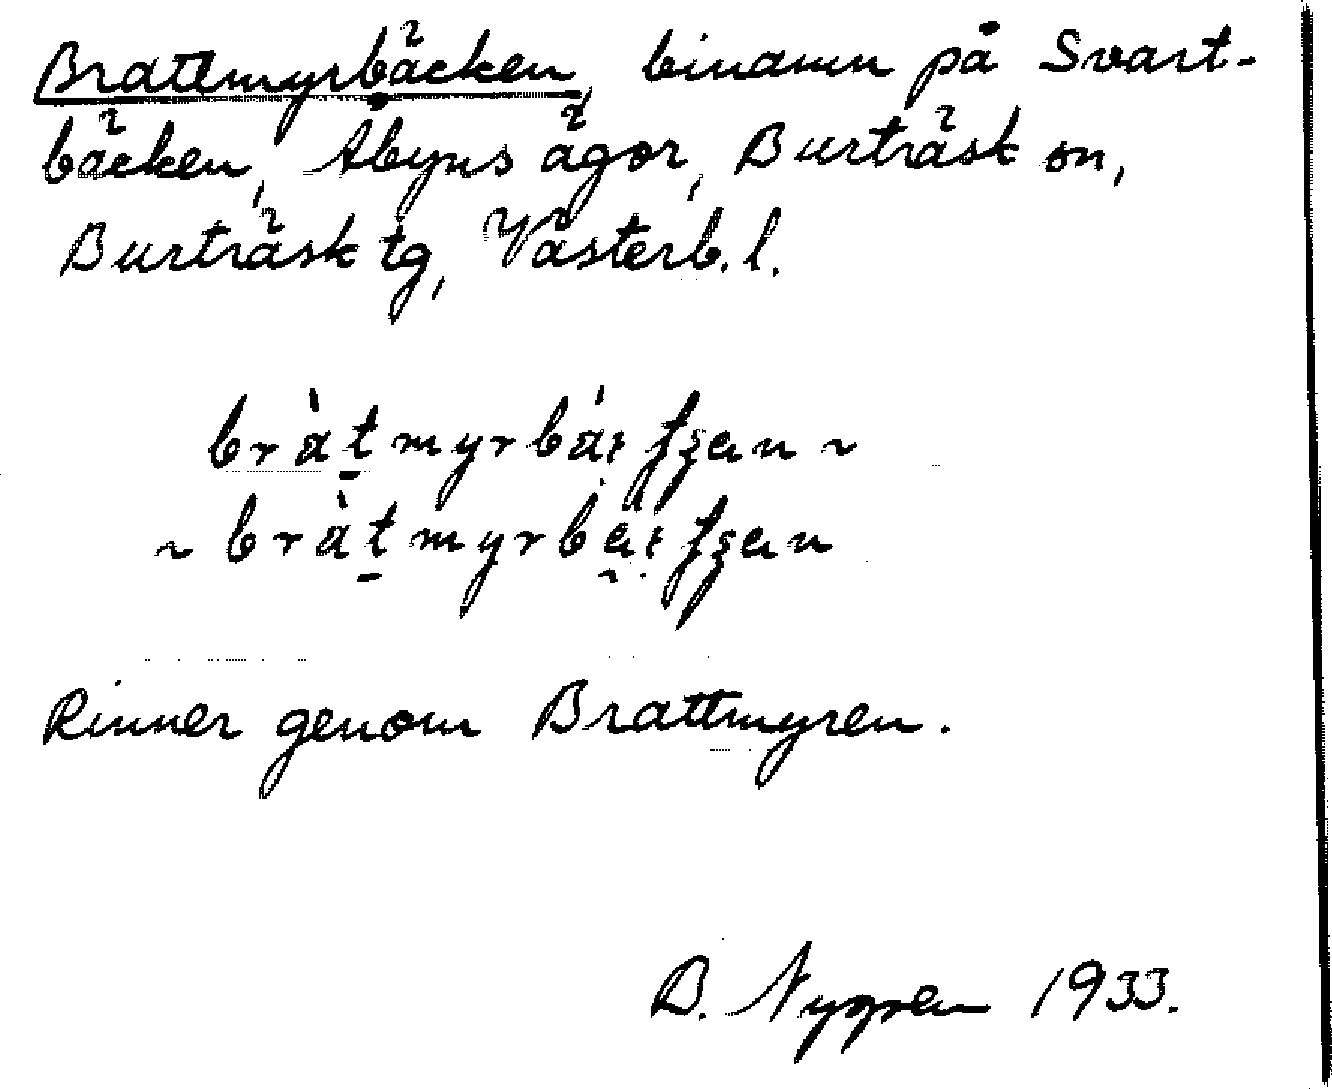 Brattmyrbäcken, binamn på Svart-
bäcken, Åbyns ägor, Burträsk sn,
Burträsk tg, Västerb. l.
Rinner genom Brattmyren.
B. Nygren 1933.